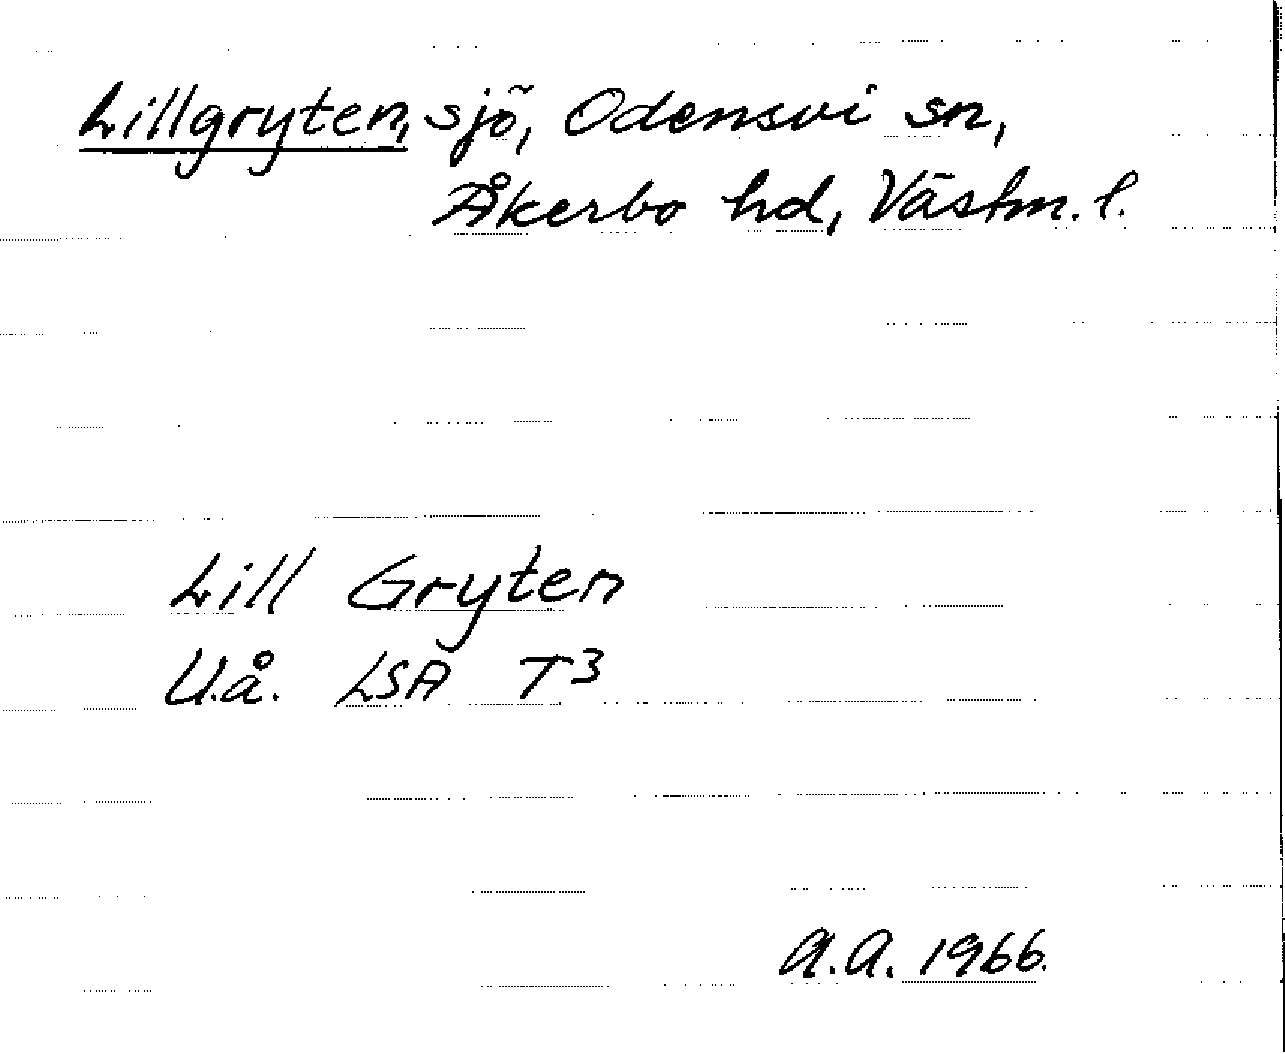 Lillgryten, sjö, Odensvi sn,
Åkerbo hd, Västm. l.
Lill Gryten
U.å. LSA T3
A.A. 1966.